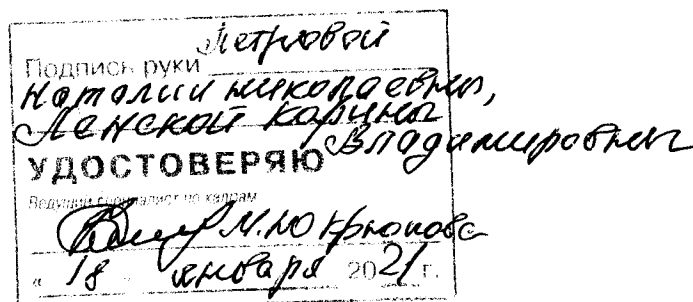 Подпись руки Петровой
Наталии Николаевны,
Ленской Карины
Владимировны
УДОСТОВЕРЯЮ
Ведущий специалист по кадрам
М.Ю Крюкова
« 18 » января 2021 г.